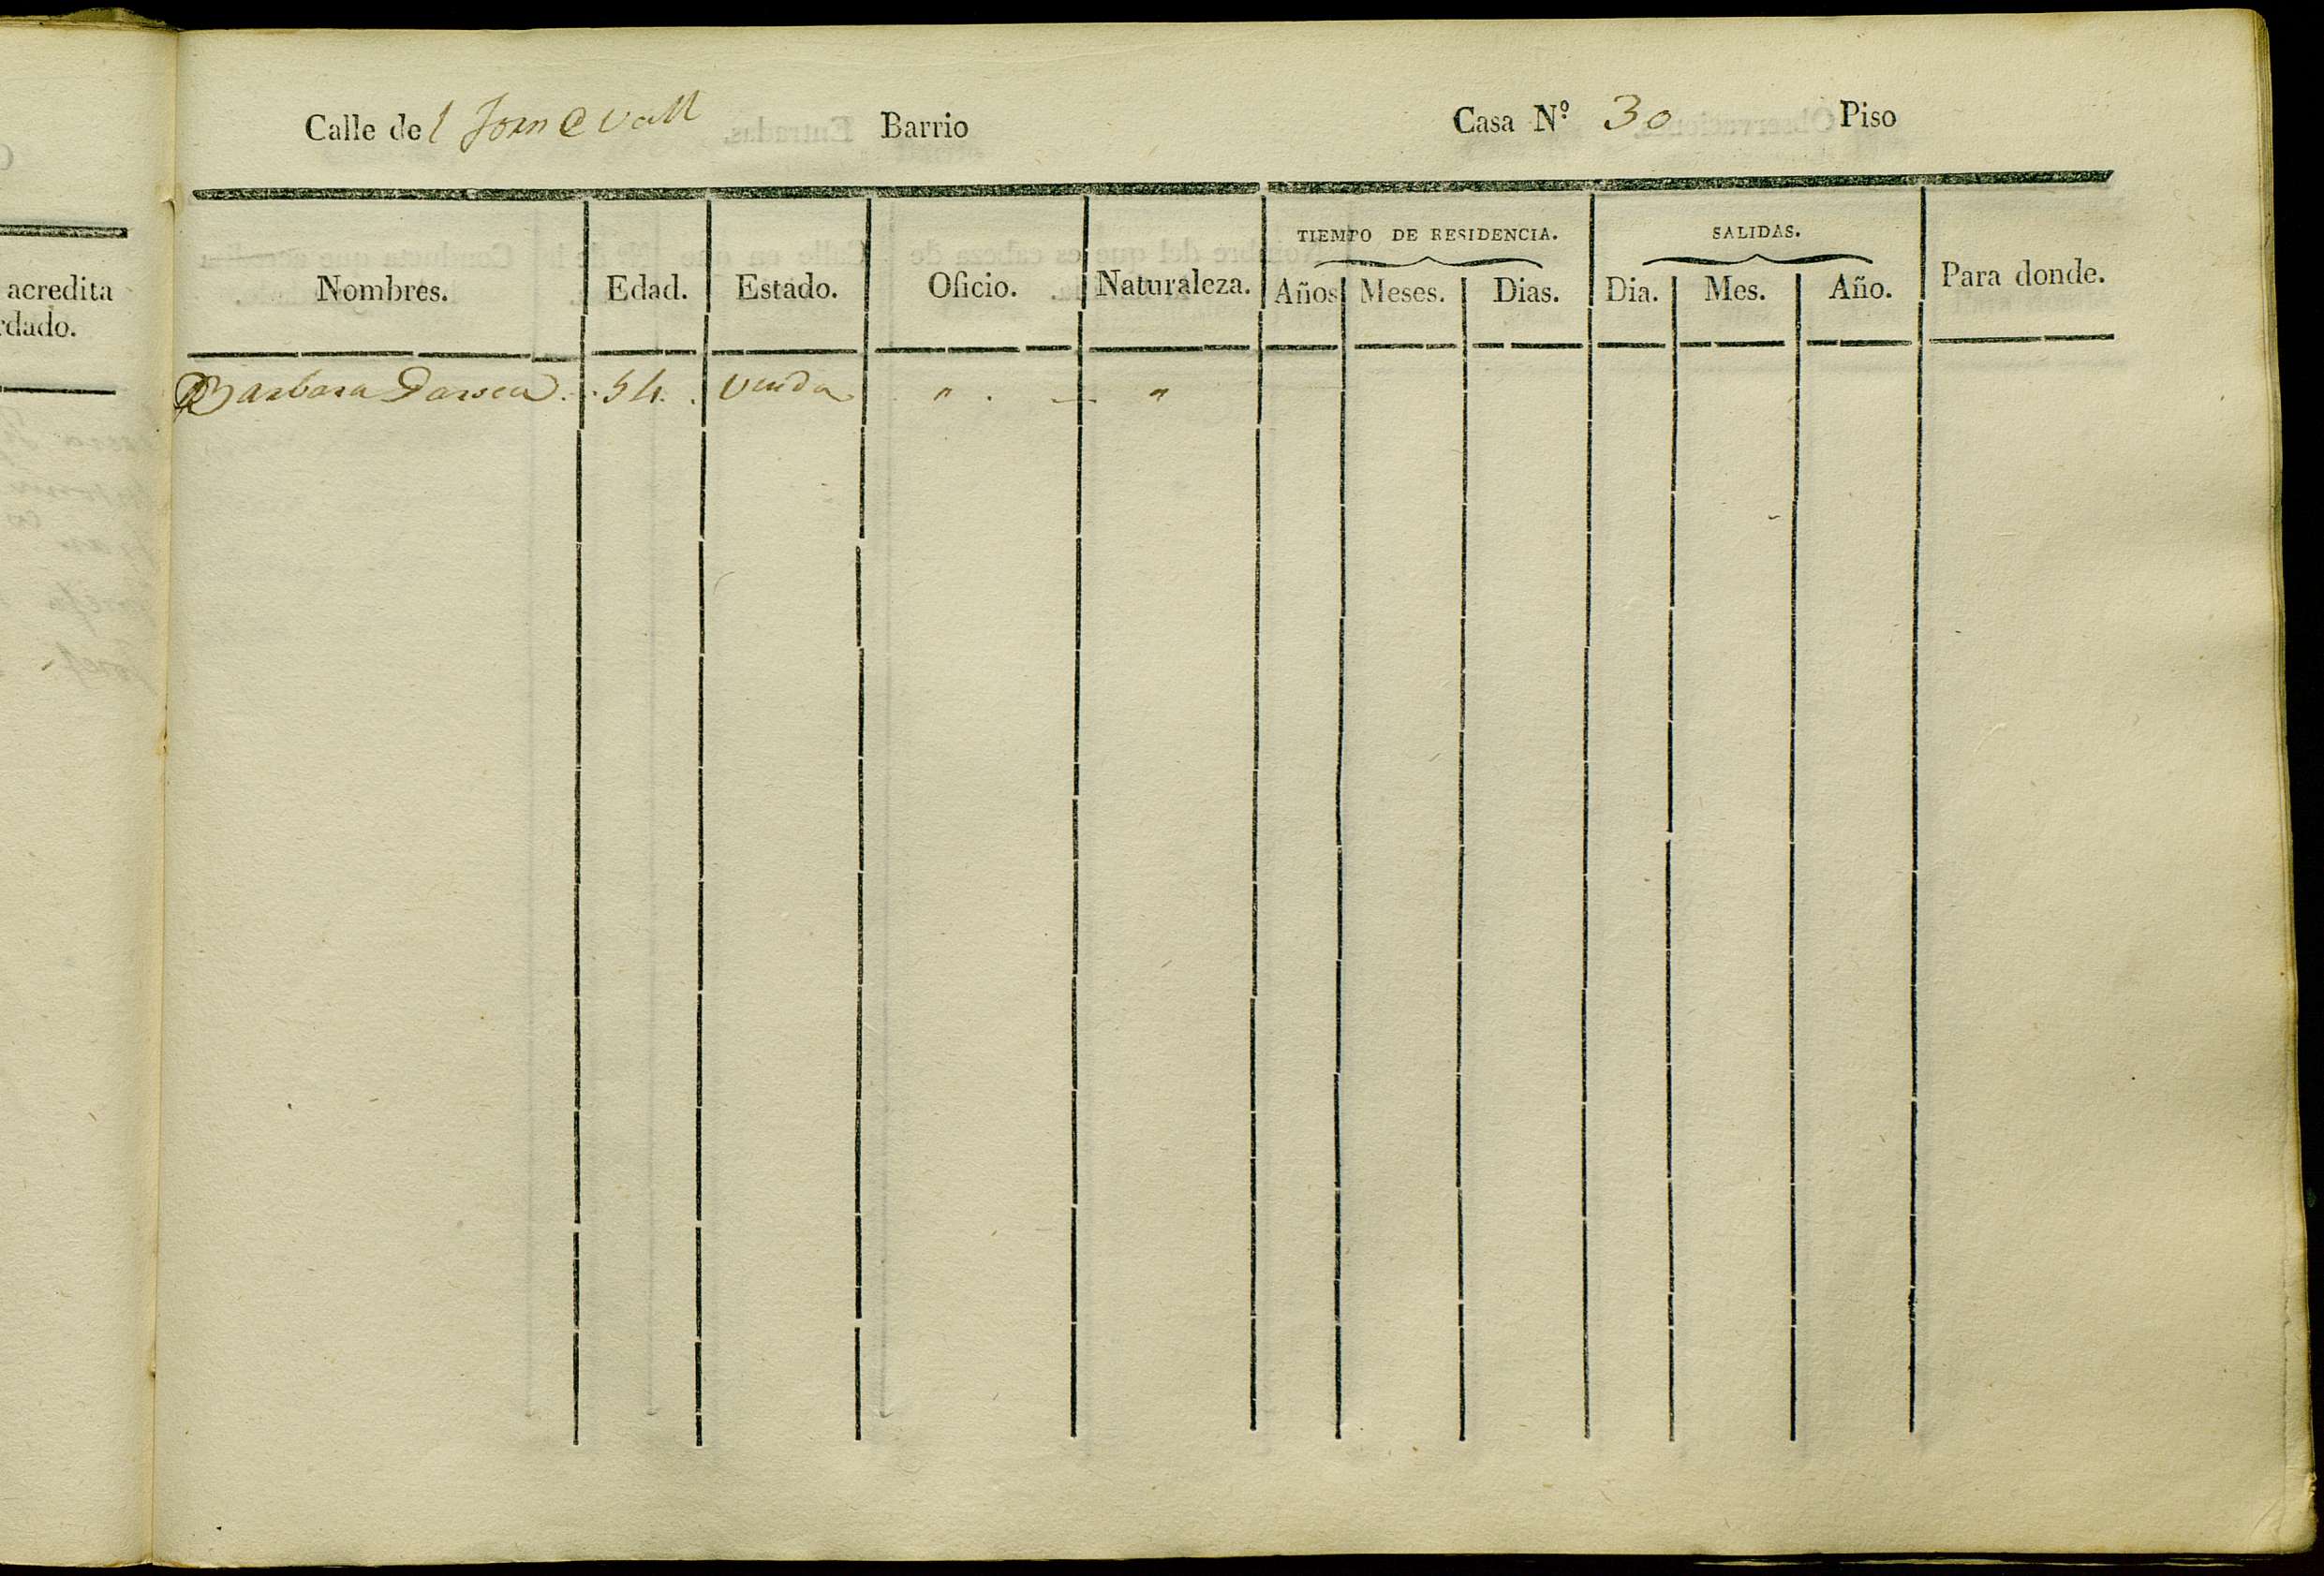 acredita
rdado.
Calle del Barrio Casa N.º 30 Piso
TIEMPO DE RESIDENCIA. SALIDAS.
Nombres. Edad. Estado. Oficio. Naturaleza. Años Meses. Dias. Dia. Mes. Año. Para donde.
Barbara 54. Viuda " . — "